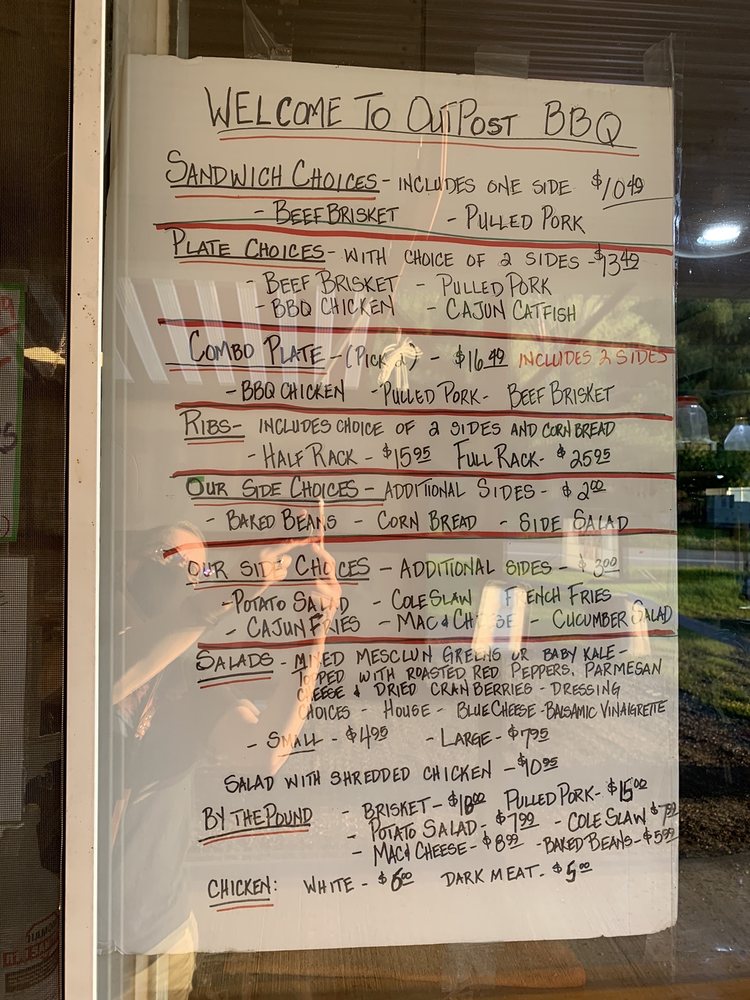 WELCOME TO OUTPOST BBQ
SANDWICH CHOICES - INCLUDES ONE SIDE $10.49
- BEEF BRISKET - PULLED PORK
PLATE CHOICES - WITH CHOICE OF 2 SIDES - $13.49
- BEEF BRISKET - PULLED PORK
- BBQ CHICKEN - CAJUN CATFISH
COMBO PLATE - (PICK 2) - $16.49 INCLUDES 2 SIDES
- BBQ CHICKEN - PULLED PORK - BEEF BRISKET
RIBS - INCLUDES CHOICE OF 2 SIDES AND CORN BREAD
- HALF RACK - $15.95 FULL RACK - $25.95
OUR SIDE CHOICES - ADDITIONAL SIDES - $2.00
- BAKED BEANS - CORN BREAD - SIDE SALAD
OUR SIDE CHOICES - ADDITIONAL SIDES - $3.00
- POTATO SALAD - COLE SLAW FRENCH FRIES
- CAJUN FRIES - MAC & CHEESE - CUCUMBER SALAD
SALADS - MIXED MESCLUN GREENS OR BABY KALE -
TOPPED WITH ROASTED RED PEPPERS, PARMESAN
CHEESE & DRIED CRANBERRIES - DRESSING
CHOICES - HOUSE - BLUE CHEESE - BALSAMIC VINAIGRETTE
- SMALL - $4.95 - LARGE - $7.95
SALAD WITH SHREDDED CHICKEN - $10.95
BY THE POUND - BRISKET - $18.00 PULLED PORK - $15.00
- POTATO SALAD - $7.99 - COLE SLAW $7.99
- MAC & CHEESE - $8.99 - BAKED BEANS - $5.99
CHICKEN: WHITE - $6.00 DARK MEAT - $5.00